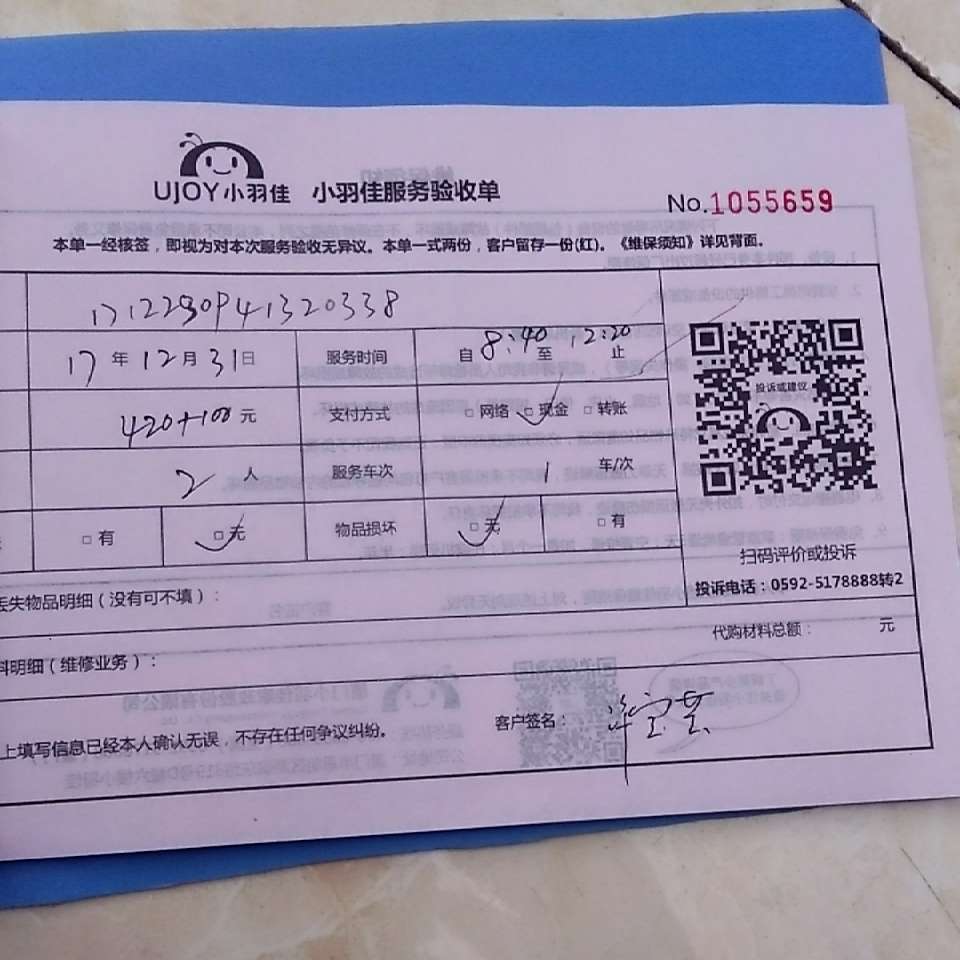 UJOY小羽佳 小羽佳服务验收单
No.1055659
本单一经核签，即视为对本次服务验收无异议。本单一式两份，客户留存一份(红)。《维保须知》详见背面。
1712290941320338
17年12月31日 服务时间 自8:40至12:20止
420+100元 支付方式 □网络 □现金 □转账
投诉或建议
2人 服务车次 1车/次
□有 □无 物品损坏 □无 □有
扫码评价或投诉
投诉电话：0592-5178888转2
丢失物品明细（没有可不填）：
代购材料总额： 元
料明细（维修业务）：
上填写信息已经本人确认无误，不存在任何争议纠纷。
客户签名：